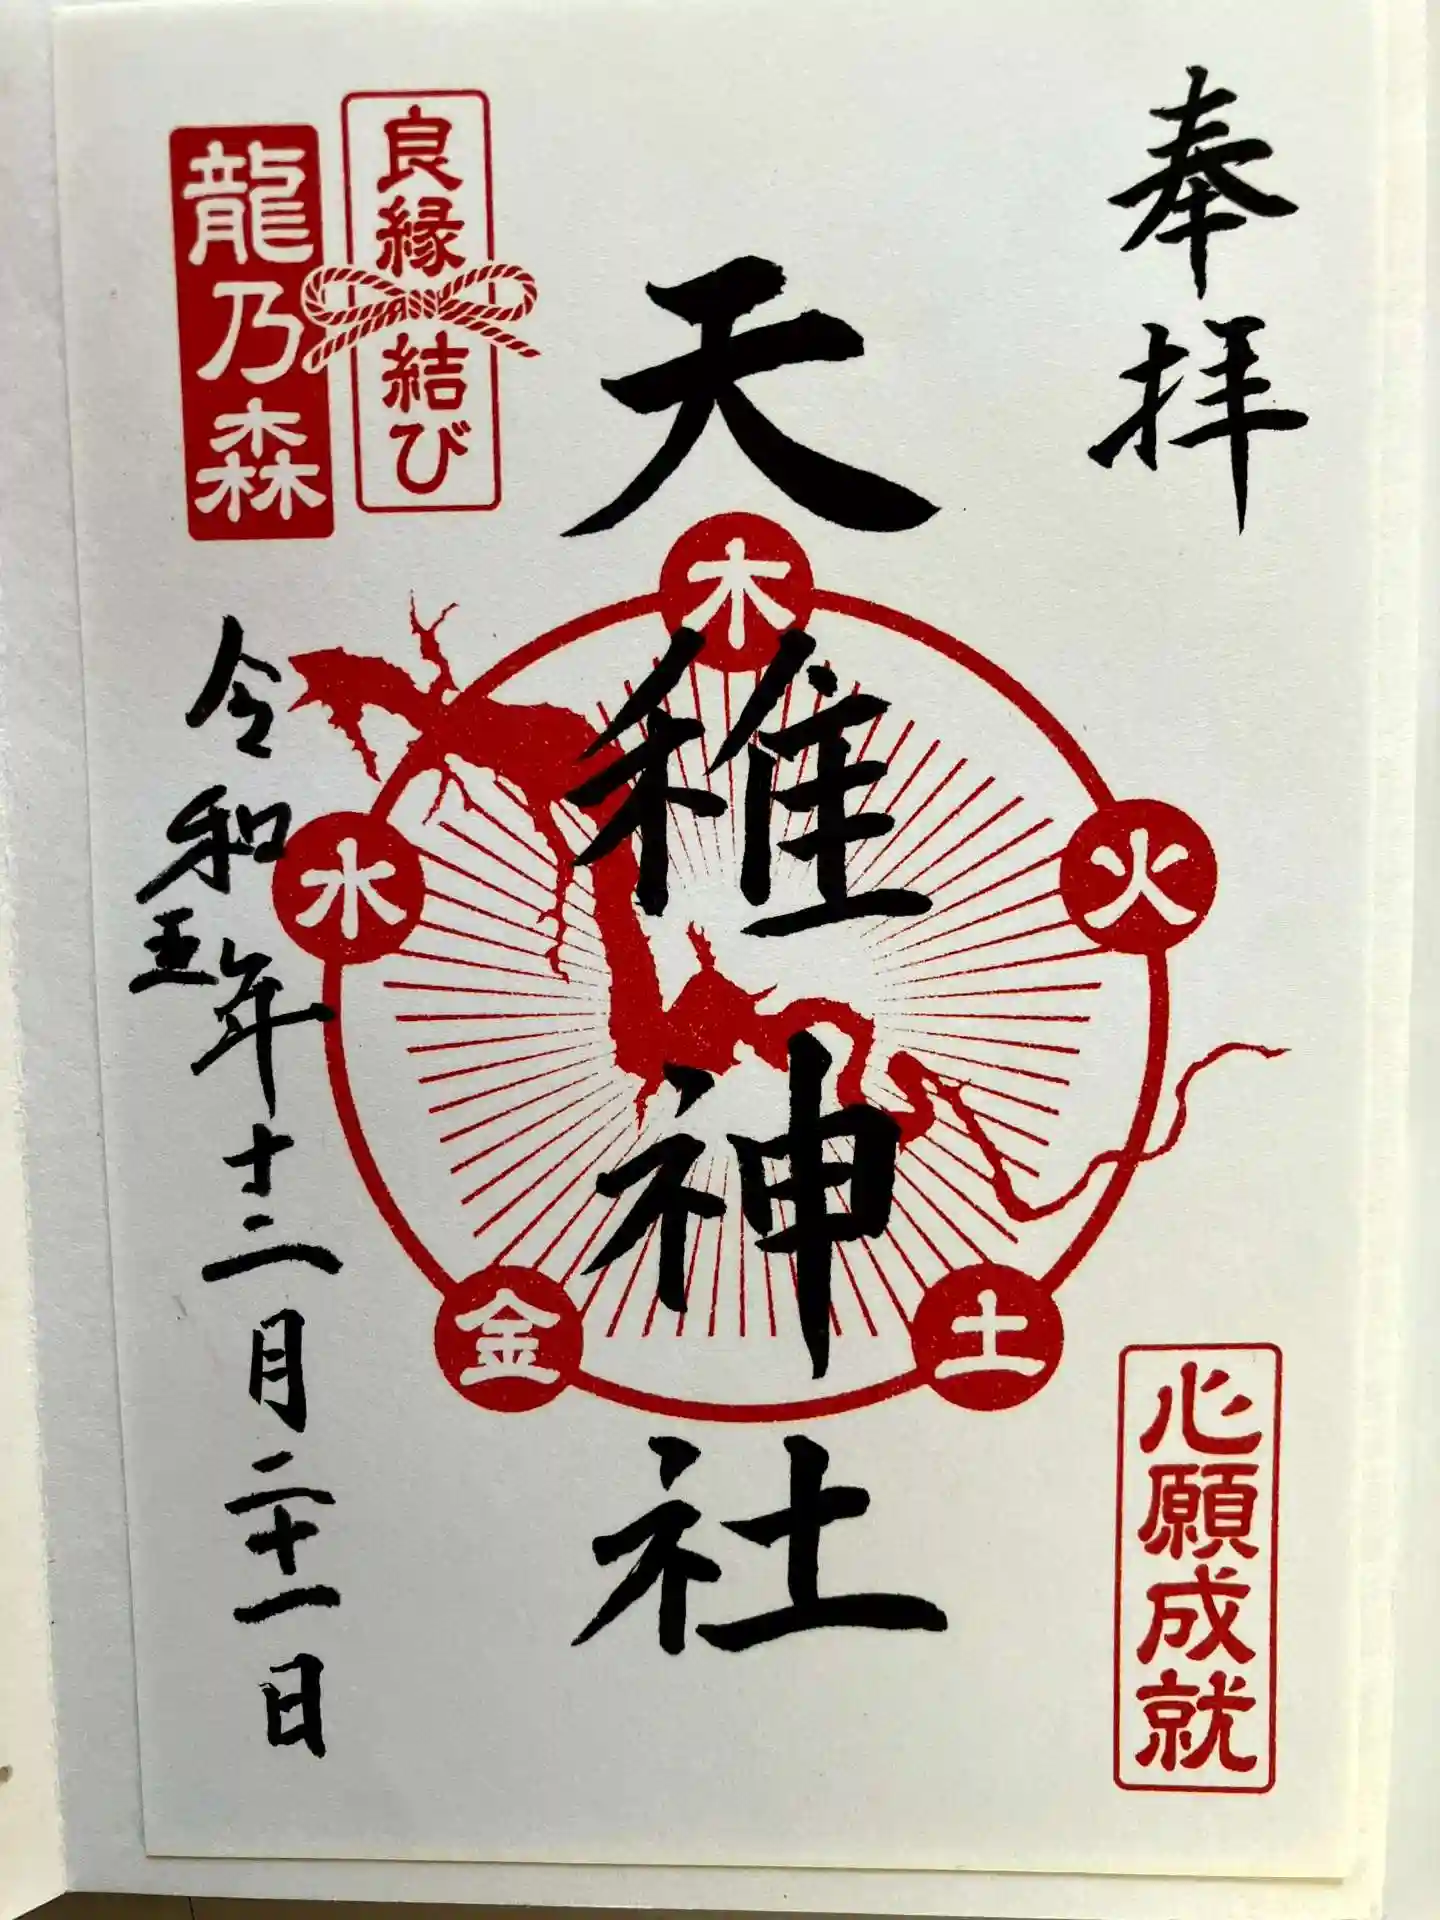 奉拝
心願成就
天稚神社
木
火
土
金
水
良縁結び
龍乃森
令和五年十二月二十一日